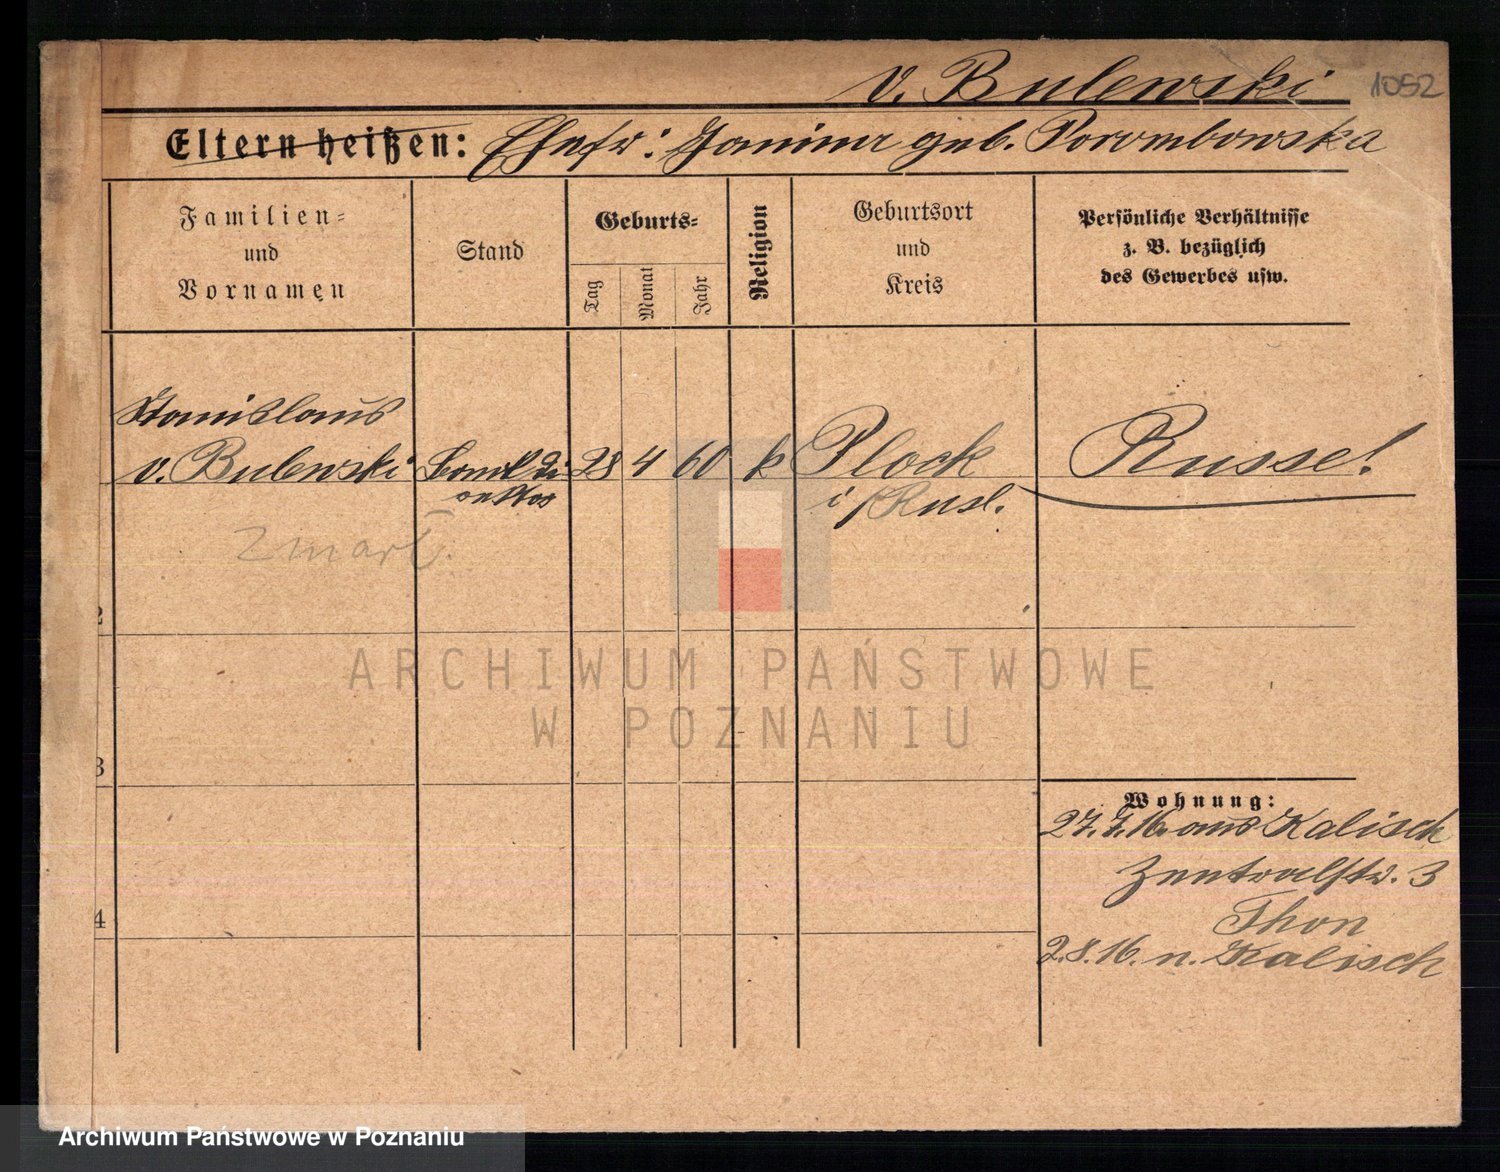 v. Bulewski 1052
Eltern heißen: Ehefr: Janina geb. Porombowska
Familien-
und
Vornamen
Stand
Geburts-
Tag
Monat
Jahr
Religion
Geburtsort
und
Kreis
Persönliche Verhältnisse
z. B. bezüglich
des Gewerbes usw.
Stanislaus
v. Bulewski
Bankdi-
rektor
28 4 60 k
Plock
i/Rusl.
Russe!
zmarł.
2
3
4
Wohnung:
27.7.16. aus Kalisch
Zentralstr. 3
Thon
2.8.16. n. Kalisch
ARCHIWUM PAŃSTWOWE
W POZNANIU
Archiwum Państwowe w Poznaniu